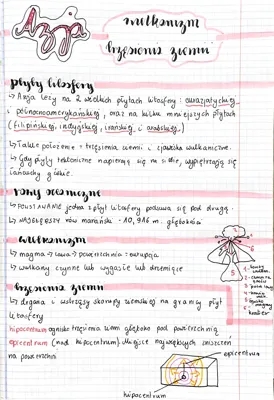 Azja
wulkanizm
trzęsienia ziemi
płyty litosfery
↳ Azja leży na 2 wielkich płytach litosfery: eurazjatyckiej
i północnoamerykańskiej, oraz na kilku mniejszych płytach
(filipińskiej, indyjskiej, irańskiej i arabskiej.)
↳ Takie położenie = trzęsienia ziemi i zjawiska wulkaniczne.
↳ Gdy płyty tektoniczne napierają się na siebie, wypiętrzają się
łańcuchy górskie.
rowy oceaniczne
↳ POWSTAWANIE jedna z płyt litosfery podsuwa się pod drugą.
↳ NAJGŁĘBSZY rów mariański - 10,9 m. głębokości
wulkanizm
↳ magma → lawa → powierzchnia = erupcja
↳ wulkany czynne lub wygasłe lub drzemiące
5
trzęsienia ziemi
↳ drgania i wstrząsy skorupy ziemskiej na granicy płyt
litosfery
hipocentrum ognisko trzęsienia ziemi głęboko pod powierzchnią
epicentrum (nad hipocentrum) miejsce największych zniszczeń
na powierzchni
epicentrum
hipocentrum